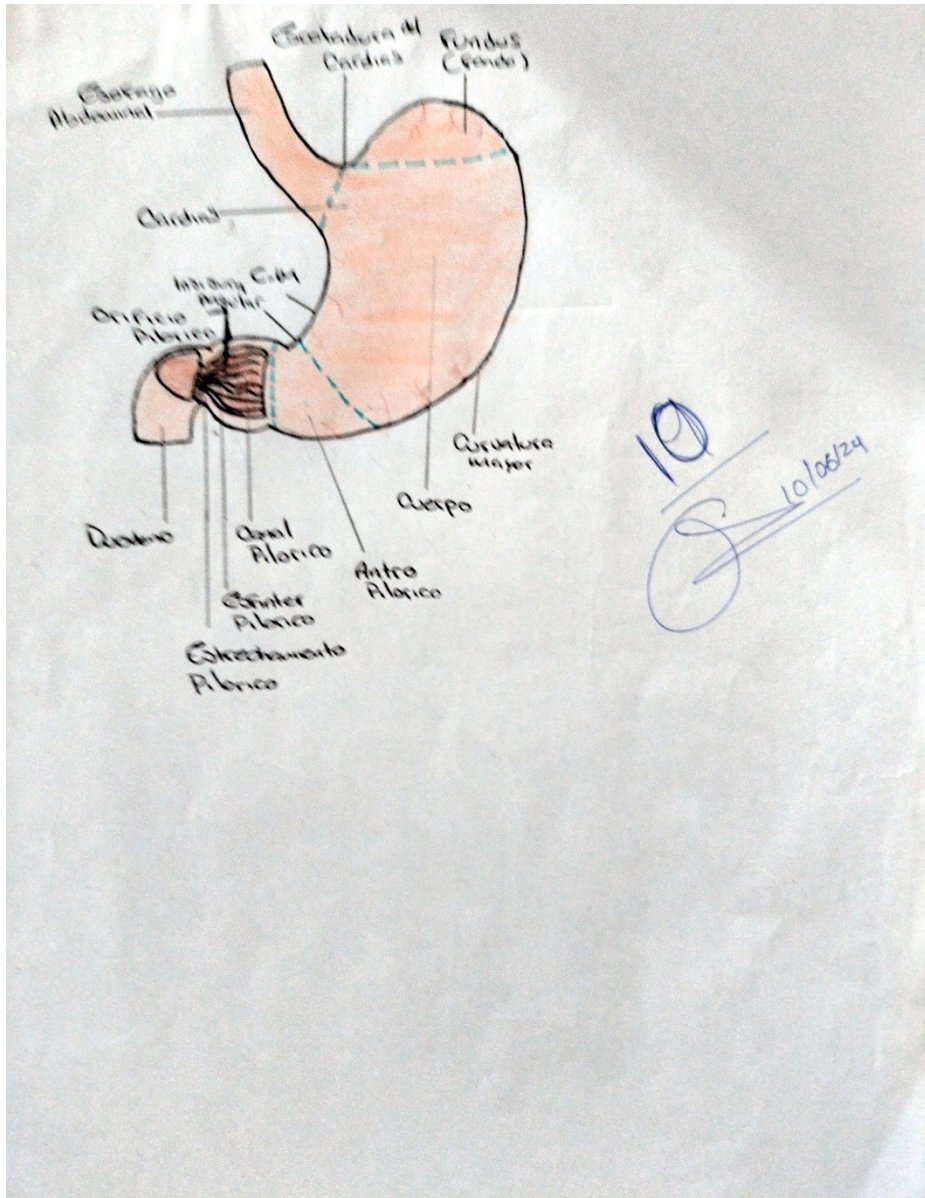 Escotadura del
Cardias
Fundus
(Fondo)
Esofago
Abdominal
Cardias
Angular
Orificio
Pilorico
Curvatura
mayor
Cuerpo
Duodeno
Canal
Pilorico
Antro
Pilorico
Esfinter
Pilorico
Estrechamiento
Pilorico
10
10/06/24